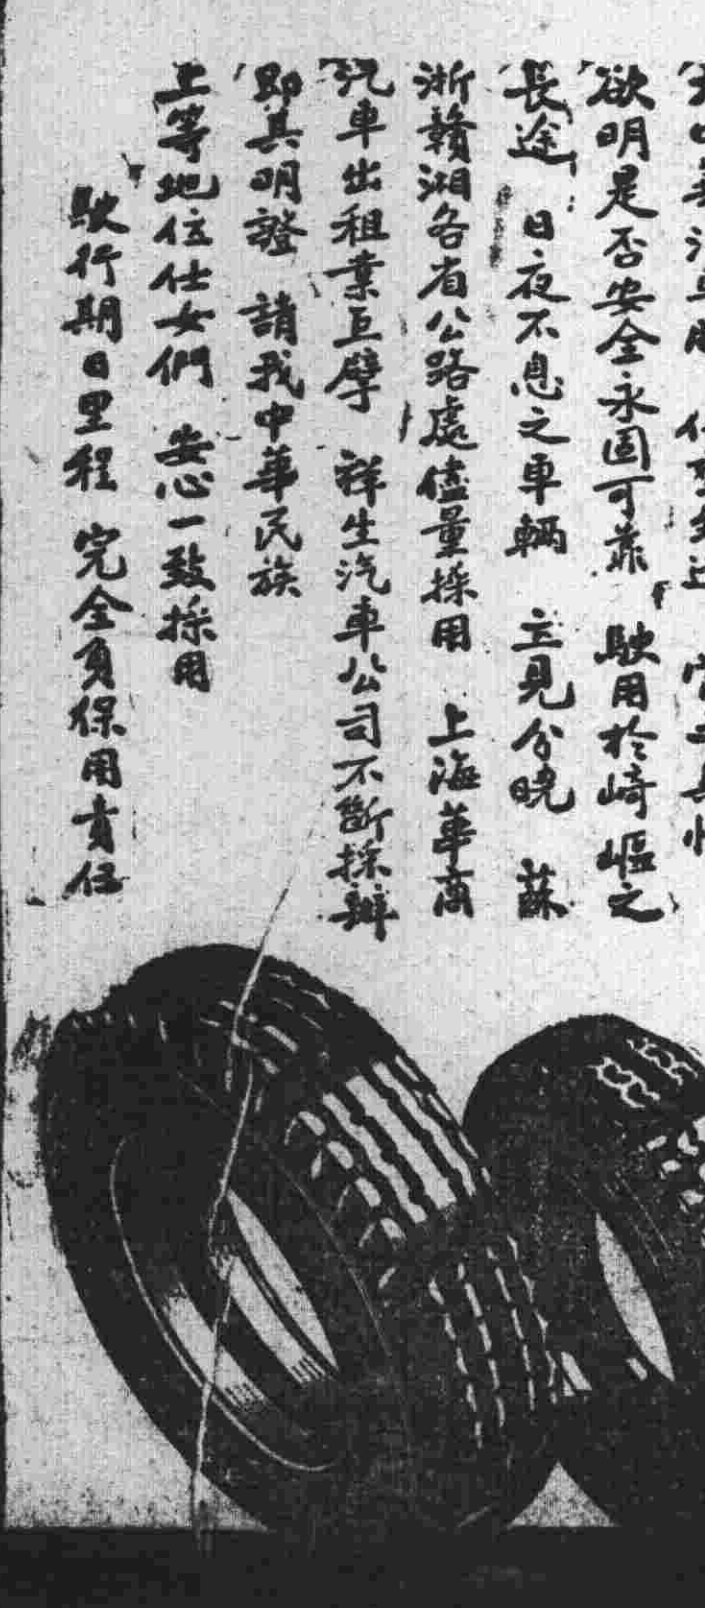 欲明是否安全永固可靠 駛用於崎嶇之
長途 日夜不息之車輛 立見分曉 蘇
浙贛湘各省公路處儘量採用 上海華商
汽車出租業巨擘 祥生汽車公司不斷採辦
即其明證 請我中華民族
上等地位仕女們 安心一致採用
駛行期日里程 完全負保用責任